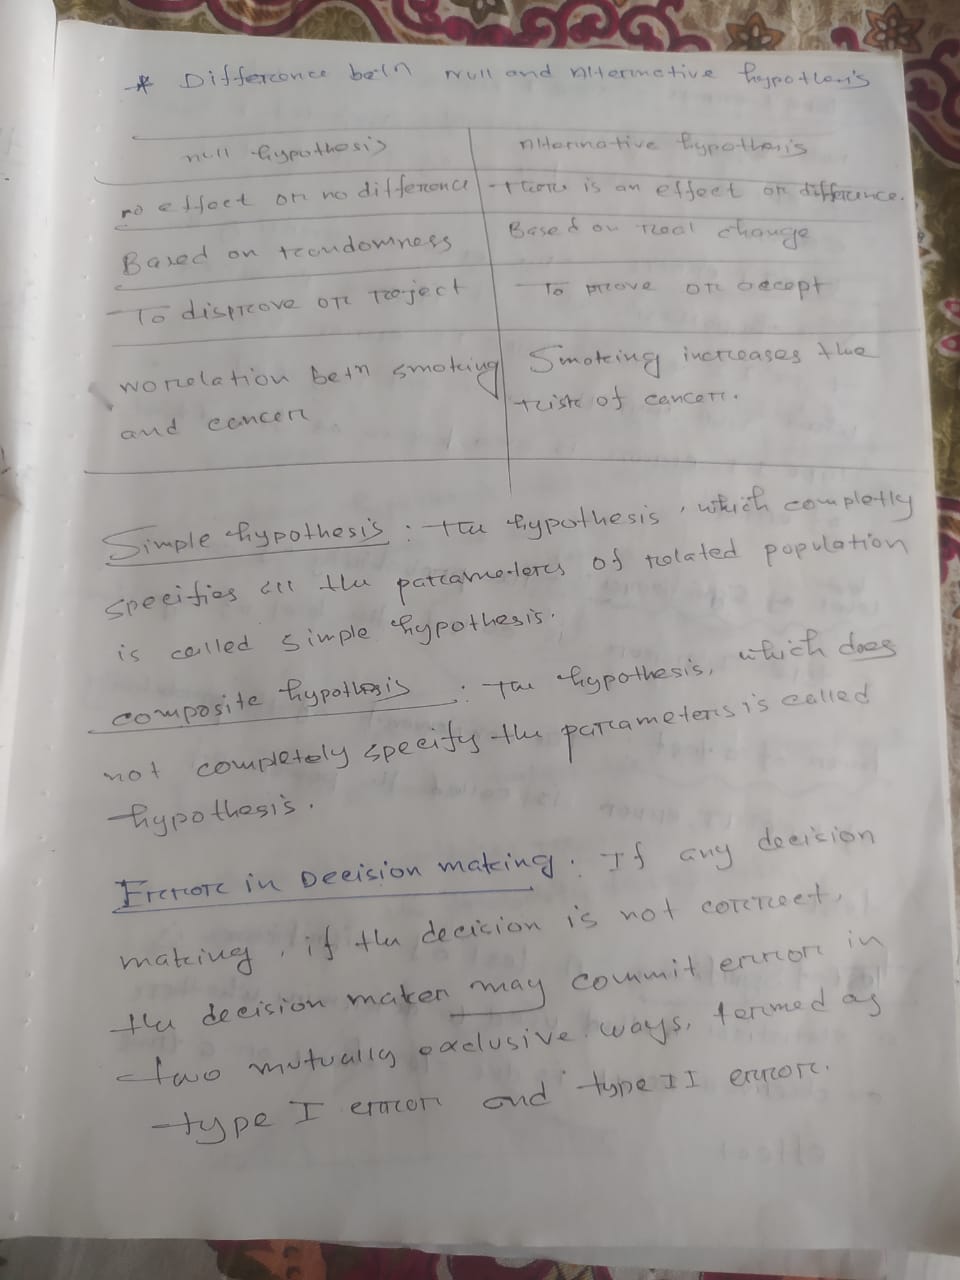 * Difference betn null and Alternative hypothesis
null hypothesis | Alternative hypothesis
no effect or no difference | there is an effect or difference.
Based on randomness | Based on real change
To disprove or reject | To prove or accept
No relation betn smoking | Smoking increases the
and cancer | risk of cancer.
Simple hypothesis : the hypothesis, which completly
specifies all the parameters of related population
is called simple hypothesis.
composite hypothesis : the hypothesis, which does
not completely specify the parameters is called
hypothesis.
Error in Decision making. If any decision
making, if the decision is not correct,
the decision maker may commit error in
two mutually exclusive ways, termed as
type I error and type II error.